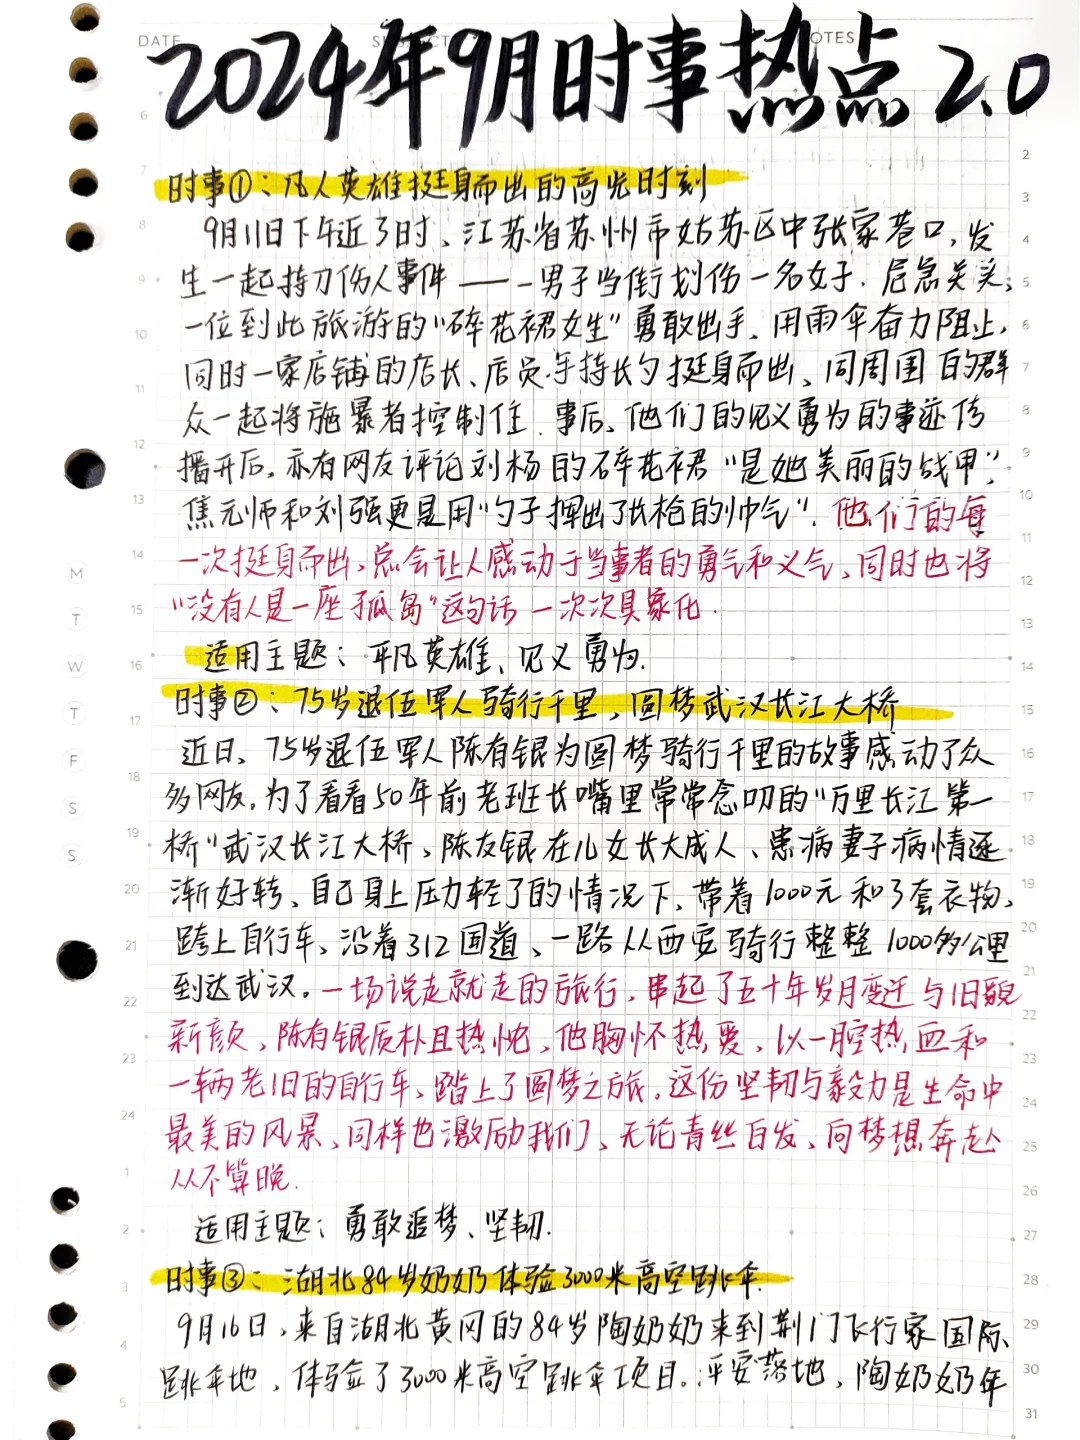 DATE
NOTES
2024年9月时事热点 2.0
时事①：凡人英雄挺身而出的高光时刻
9月11日下午近3时、江苏省苏州市姑苏区中张家巷口，发
生一起持刀伤人事件——一男子当街划伤一名女子. 危急关头，
一位到此旅游的“碎花裙女生”勇敢出手、用雨伞奋力阻止，
同时一家店铺的店长、店员手持长勺挺身而出、同周围的群
众一起将施暴者控制住. 事后、他们的见义勇为的事迹传
播开后。亦有网友评论刘杨的碎花裙“是她美丽的战甲”，
焦元师和刘强更是用“勺子挥出了长枪的帅气”. 他们的每
一次挺身而出、总会让人感动于当事者的勇气和义气、同时也将
“没有人是一座孤岛”这句话一次次具象化.
适用主题：平凡英雄、见义勇为.
时事②：75岁退伍军人骑行千里、圆梦武汉长江大桥
近日、75岁退伍军人陈有银为圆梦骑行千里的故事感动了众
多网友。为了看看50年前老班长嘴里常常念叨的“万里长江第一
桥”武汉长江大桥、陈友银在儿女长大成人、患病妻子病情逐
渐好转、自己身上压力轻了的情况下、带着1000元和3套衣物、
跨上自行车、沿着312国道、一路从西安骑行整整1000多公里
到达武汉。一场说走就走的旅行，串起了五十年岁月变迁与旧貌
新颜、陈有银质朴且热忱、他胸怀热爱、以一腔热血和
一辆老旧的自行车、踏上了圆梦之旅。这份坚韧与毅力是生命中
最美的风景、同样也激励我们、无论青丝白发、向梦想奔赴
从不算晚.
适用主题：勇敢追梦、坚韧.
时事③：湖北84岁奶奶体验3000米高空跳伞.
9月16日、来自湖北黄冈的84岁陶奶奶来到荆门飞行家国际
跳伞地、体验了3000米高空跳伞项目。平安落地、陶奶奶年